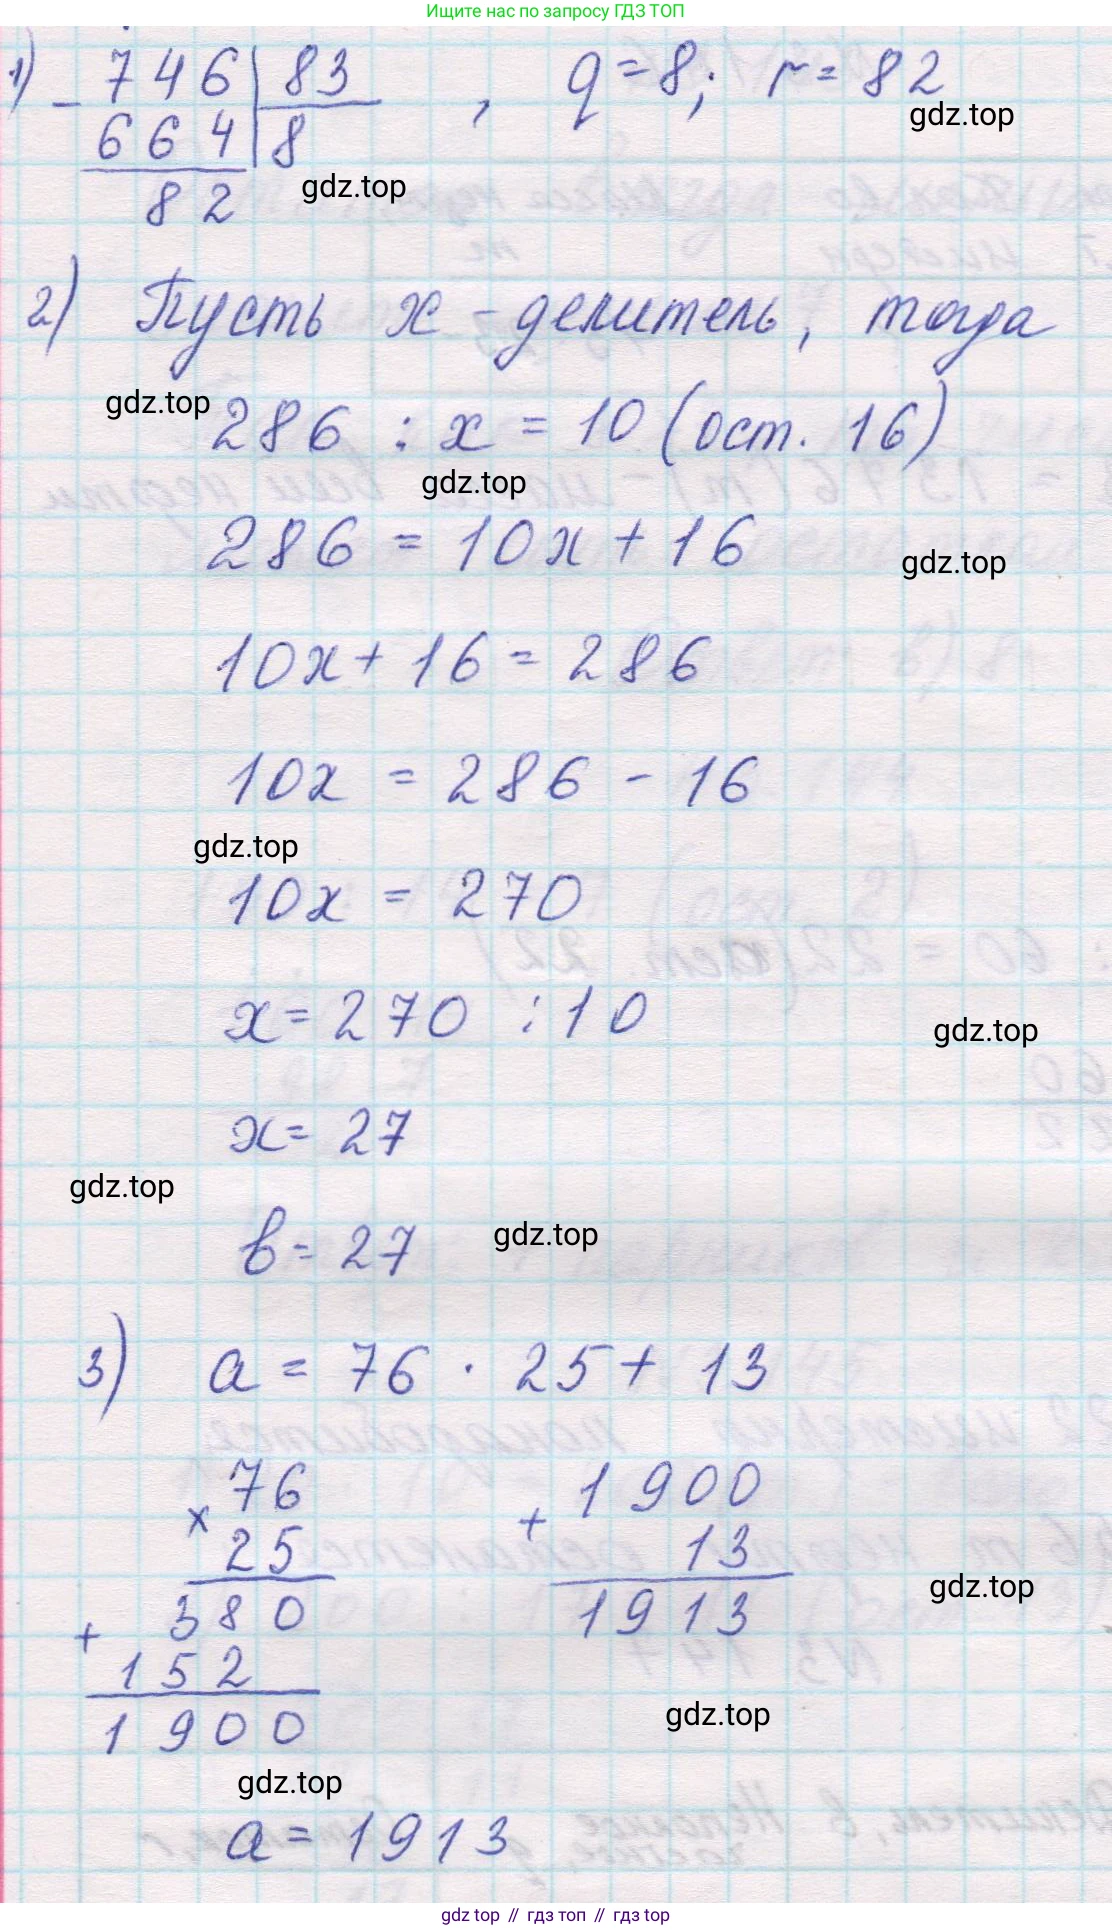 Ищите нас по запросу ГДЗ ТОП
1) 746 | 83 , q = 8; r = 82
gdz.top
− 664 | 8
gdz.top
82
2) Пусть х - делитель, тогда
gdz.top
286 : х = 10 (ост. 16)
gdz.top
286 = 10х + 16
gdz.top
10х + 16 = 286
10х = 286 - 16
gdz.top
10х = 270
х = 270 : 10
gdz.top
х = 27
gdz.top
в = 27
gdz.top
3) а = 76 · 25 + 13
76 1900
× +
25 13
380 1913
gdz.top
+
152
gdz.top
1900
gdz.top
а = 1913
gdz top // гдз топ // гдз top